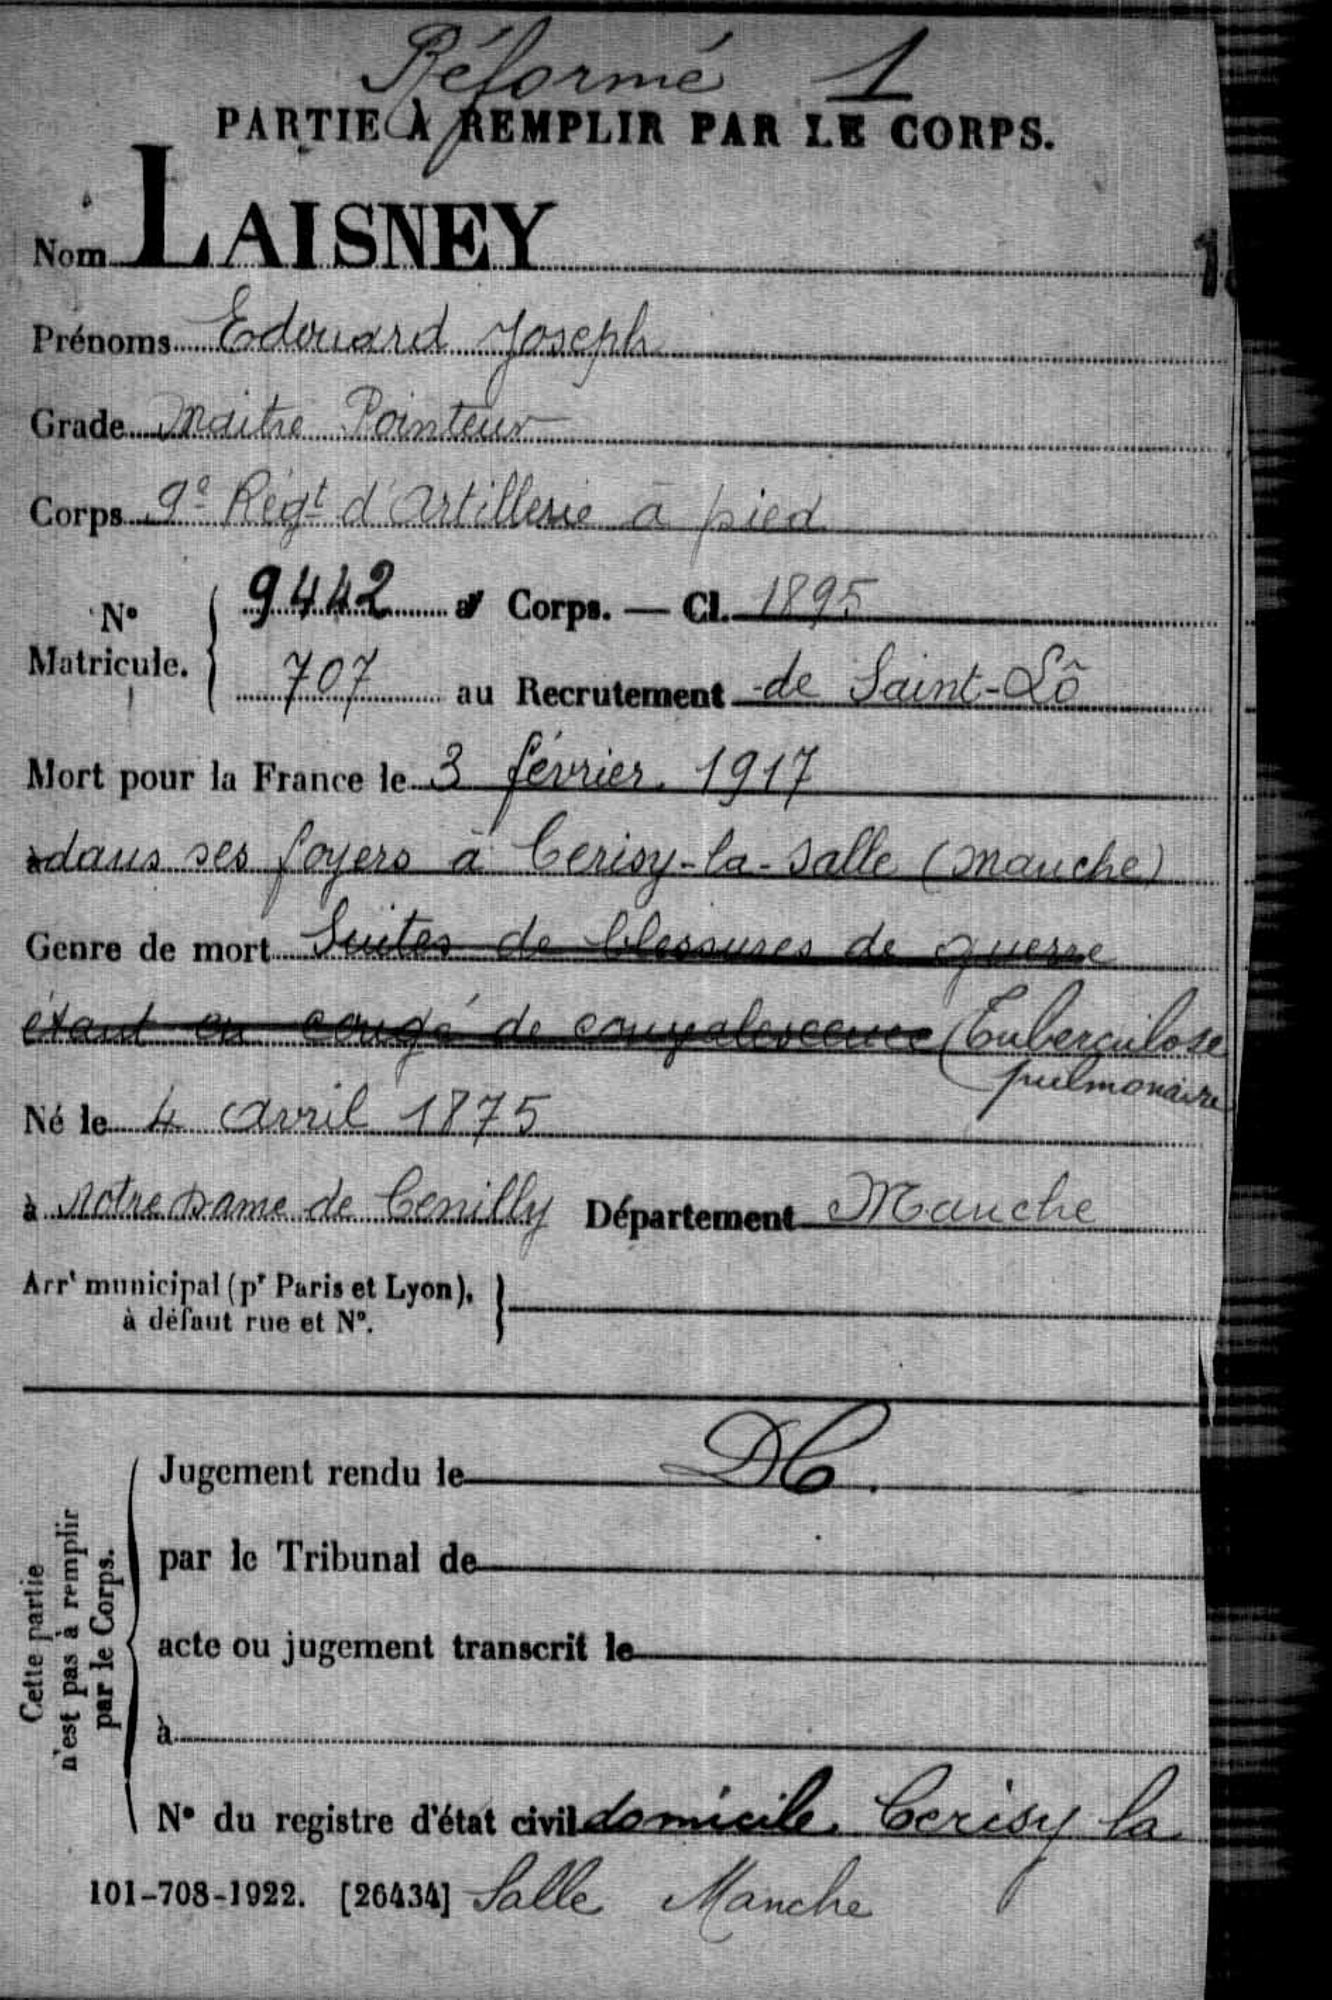 Réformé 1
PARTIE À REMPLIR PAR LE CORPS.
Nom LAISNEY
Prénoms Edouard Joseph
Grade Maitre Pointeur
Corps 9e Régt d'Artillerie à pied
N° Matricule. { 9442 au Corps. — Cl. 1895
707 au Recrutement de Saint-Lô
Mort pour la France le 3 février 1917
à dans ses foyers à Cerisy-la-Salle (Manche)
Genre de mort Suites de blessures de guerre
étant en congé de convalescence (Tuberculose
pulmonaire
Né le 4 avril 1875
à Notre Dame de Cenilly Département Manche
Arrt municipal (pr Paris et Lyon), }
à défaut rue et N°.
Cette partie
n'est pas à remplir
par le Corps.
Jugement rendu le DC.
par le Tribunal de
acte ou jugement transcrit le
à
N° du registre d'état civil domicile Cerisy la
101-708-1922. [26434] Salle Manche